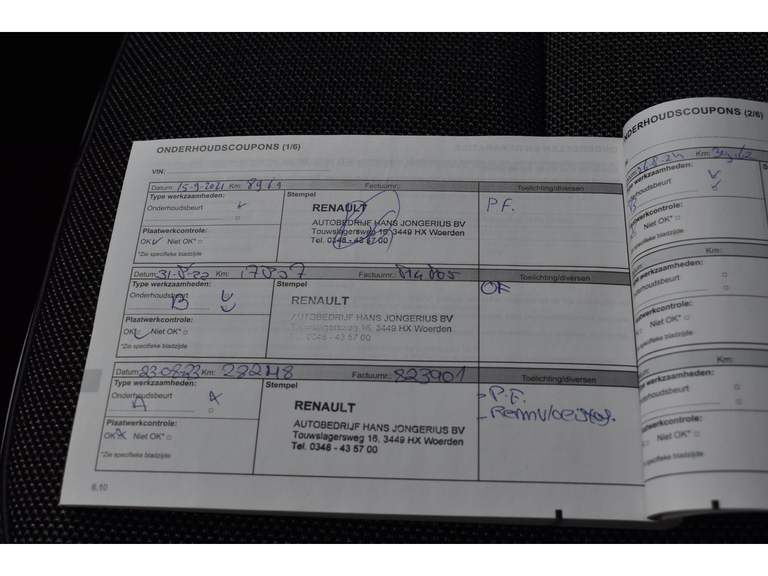 ONDERHOUDSCOUPONS (1/6)
VIN:
Datum: 15-9-2021 Km: 8969 Factuurnr.: Toelichting/diversen
Type werkzaamheden: Stempel
Onderhoudsbeurt
RENAULT
AUTOBEDRIJF HANS JONGERIUS BV
Touwslagersweg 16, 3449 HX Woerden
Tel. 0348 - 43 57 00
P.F.
Plaatwerkcontrole:
OK Niet OK*
*Zie specifieke bladzijde
Datum: 31-8-22 Km: 17837 Factuurnr.: Toelichting/diversen
Type werkzaamheden: Stempel
Onderhoudsbeurt
B
RENAULT
AUTOBEDRIJF HANS JONGERIUS BV
Touwslagersweg 16, 3449 HX Woerden
0348 - 43 57 00
OF
Plaatwerkcontrole:
OK Niet OK*
*Zie specifieke bladzijde
Datum: 23-08-23 Km: 28248 Factuurnr.: 823901 Toelichting/diversen
Type werkzaamheden: Stempel
Onderhoudsbeurt
A
RENAULT
AUTOBEDRIJF HANS JONGERIUS BV
Touwslagersweg 16, 3449 HX Woerden
Tel. 0348 - 43 57 00
- P.F.
- Remvloeistof.
Plaatwerkcontrole:
OK Niet OK*
*Zie specifieke bladzijde
6.10
NDERHOUDSCOUPONS (2/6)
Km:
werkzaamheden:
B
Niet OK*
specifieke bladzijde
Km:
werkzaamheden:
Niet OK*
specifieke bladzijde
Km:
werkzaamheden:
Niet OK*
specifieke bladzijde